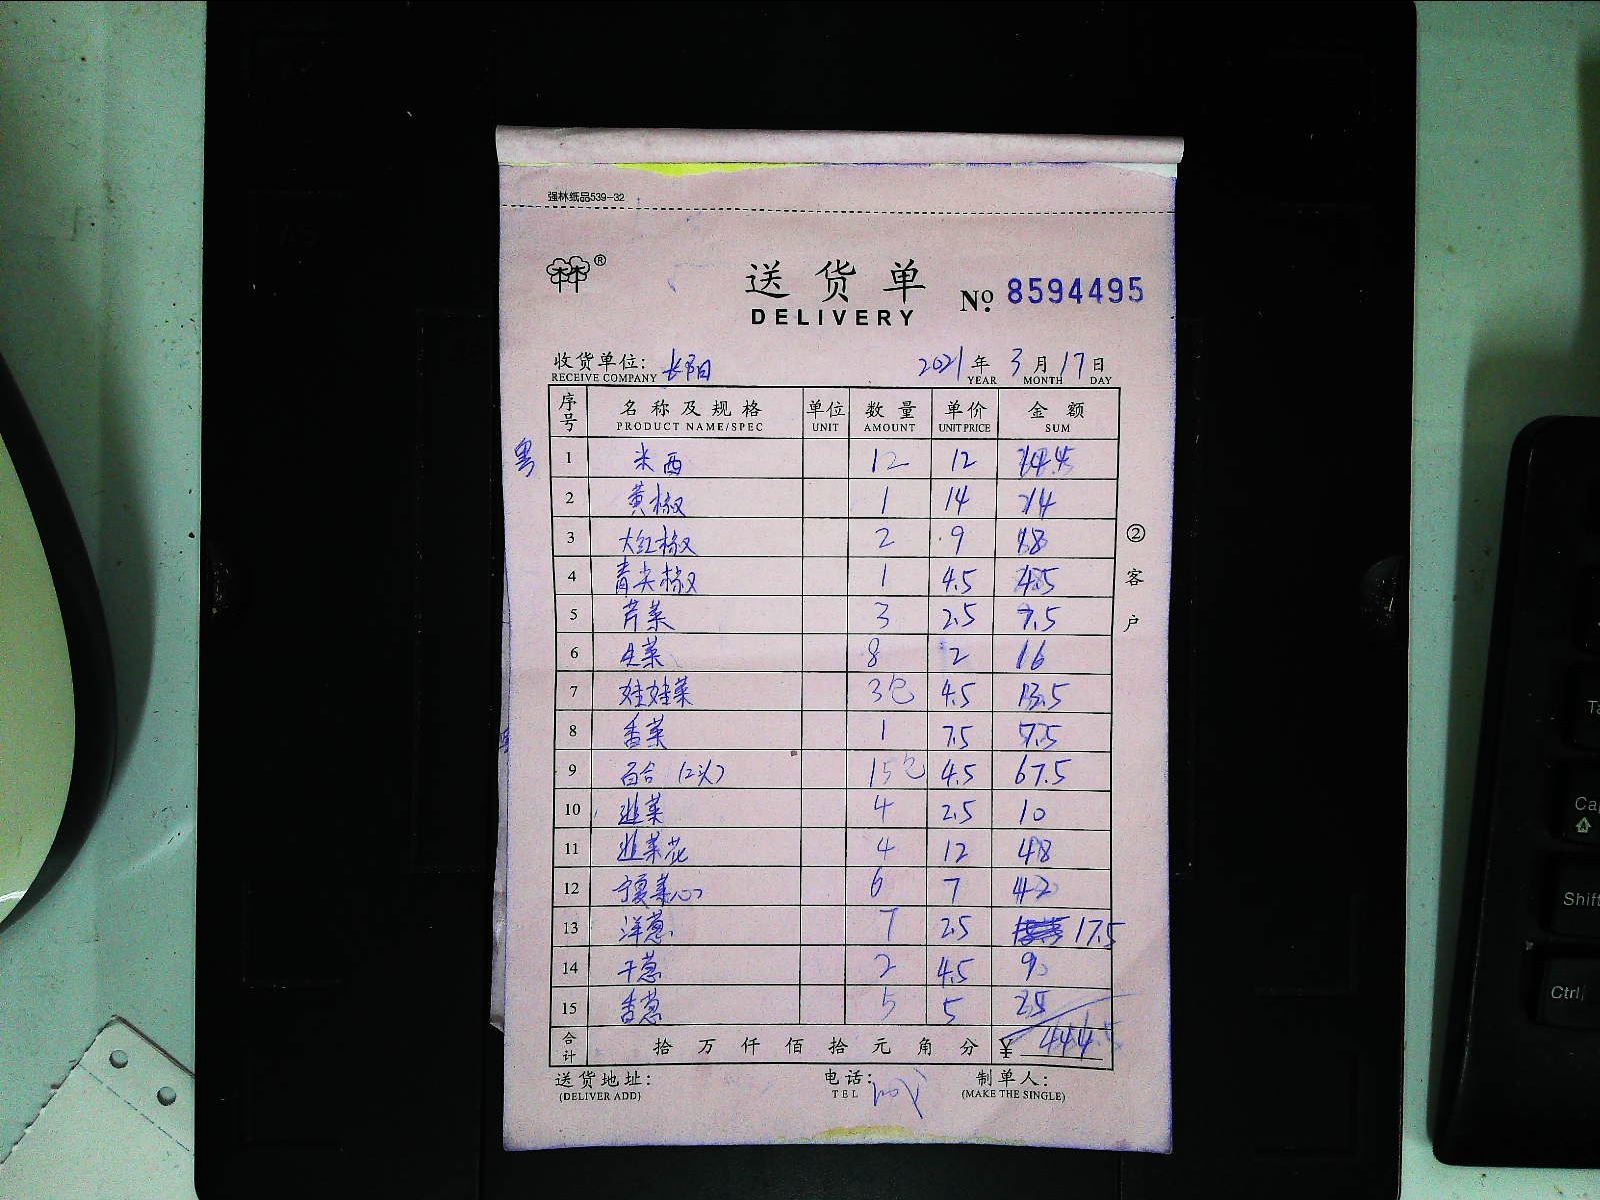 强林纸品539-32
®
送货单
DELIVERY
No. 8594495
收货单位: 长阳 2021 年 3 月 17 日
RECEIVE COMPANY YEAR MONTH DAY
序号 名称及规格 单位 数量 单价 金额
PRODUCT NAME/SPEC UNIT AMOUNT UNIT PRICE SUM
粤
1 米西 12 12 144
2 黄椒 1 14 14
3 大红椒 2 9 18
4 青尖椒 1 4.5 4.5
5 芹菜 3 2.5 7.5
6 生菜 8 2 16
7 娃娃菜 3包 4.5 13.5
8 香菜 1 7.5 7.5
9 百合(2头) 15包 4.5 67.5
10 韭菜 4 2.5 10
11 韭菜花 4 12 48
12 宁夏菜心 6 7 42
13 洋葱 7 2.5 17.5
14 干葱 2 4.5 9
15 香葱 5 5 25
合计 拾 万 仟 佰 拾 元 角 分 ¥ 444
②客户
送货地址: 电话: 制单人:
(DELIVER ADD) TEL (MAKE THE SINGLE)
Shift
Ctrl